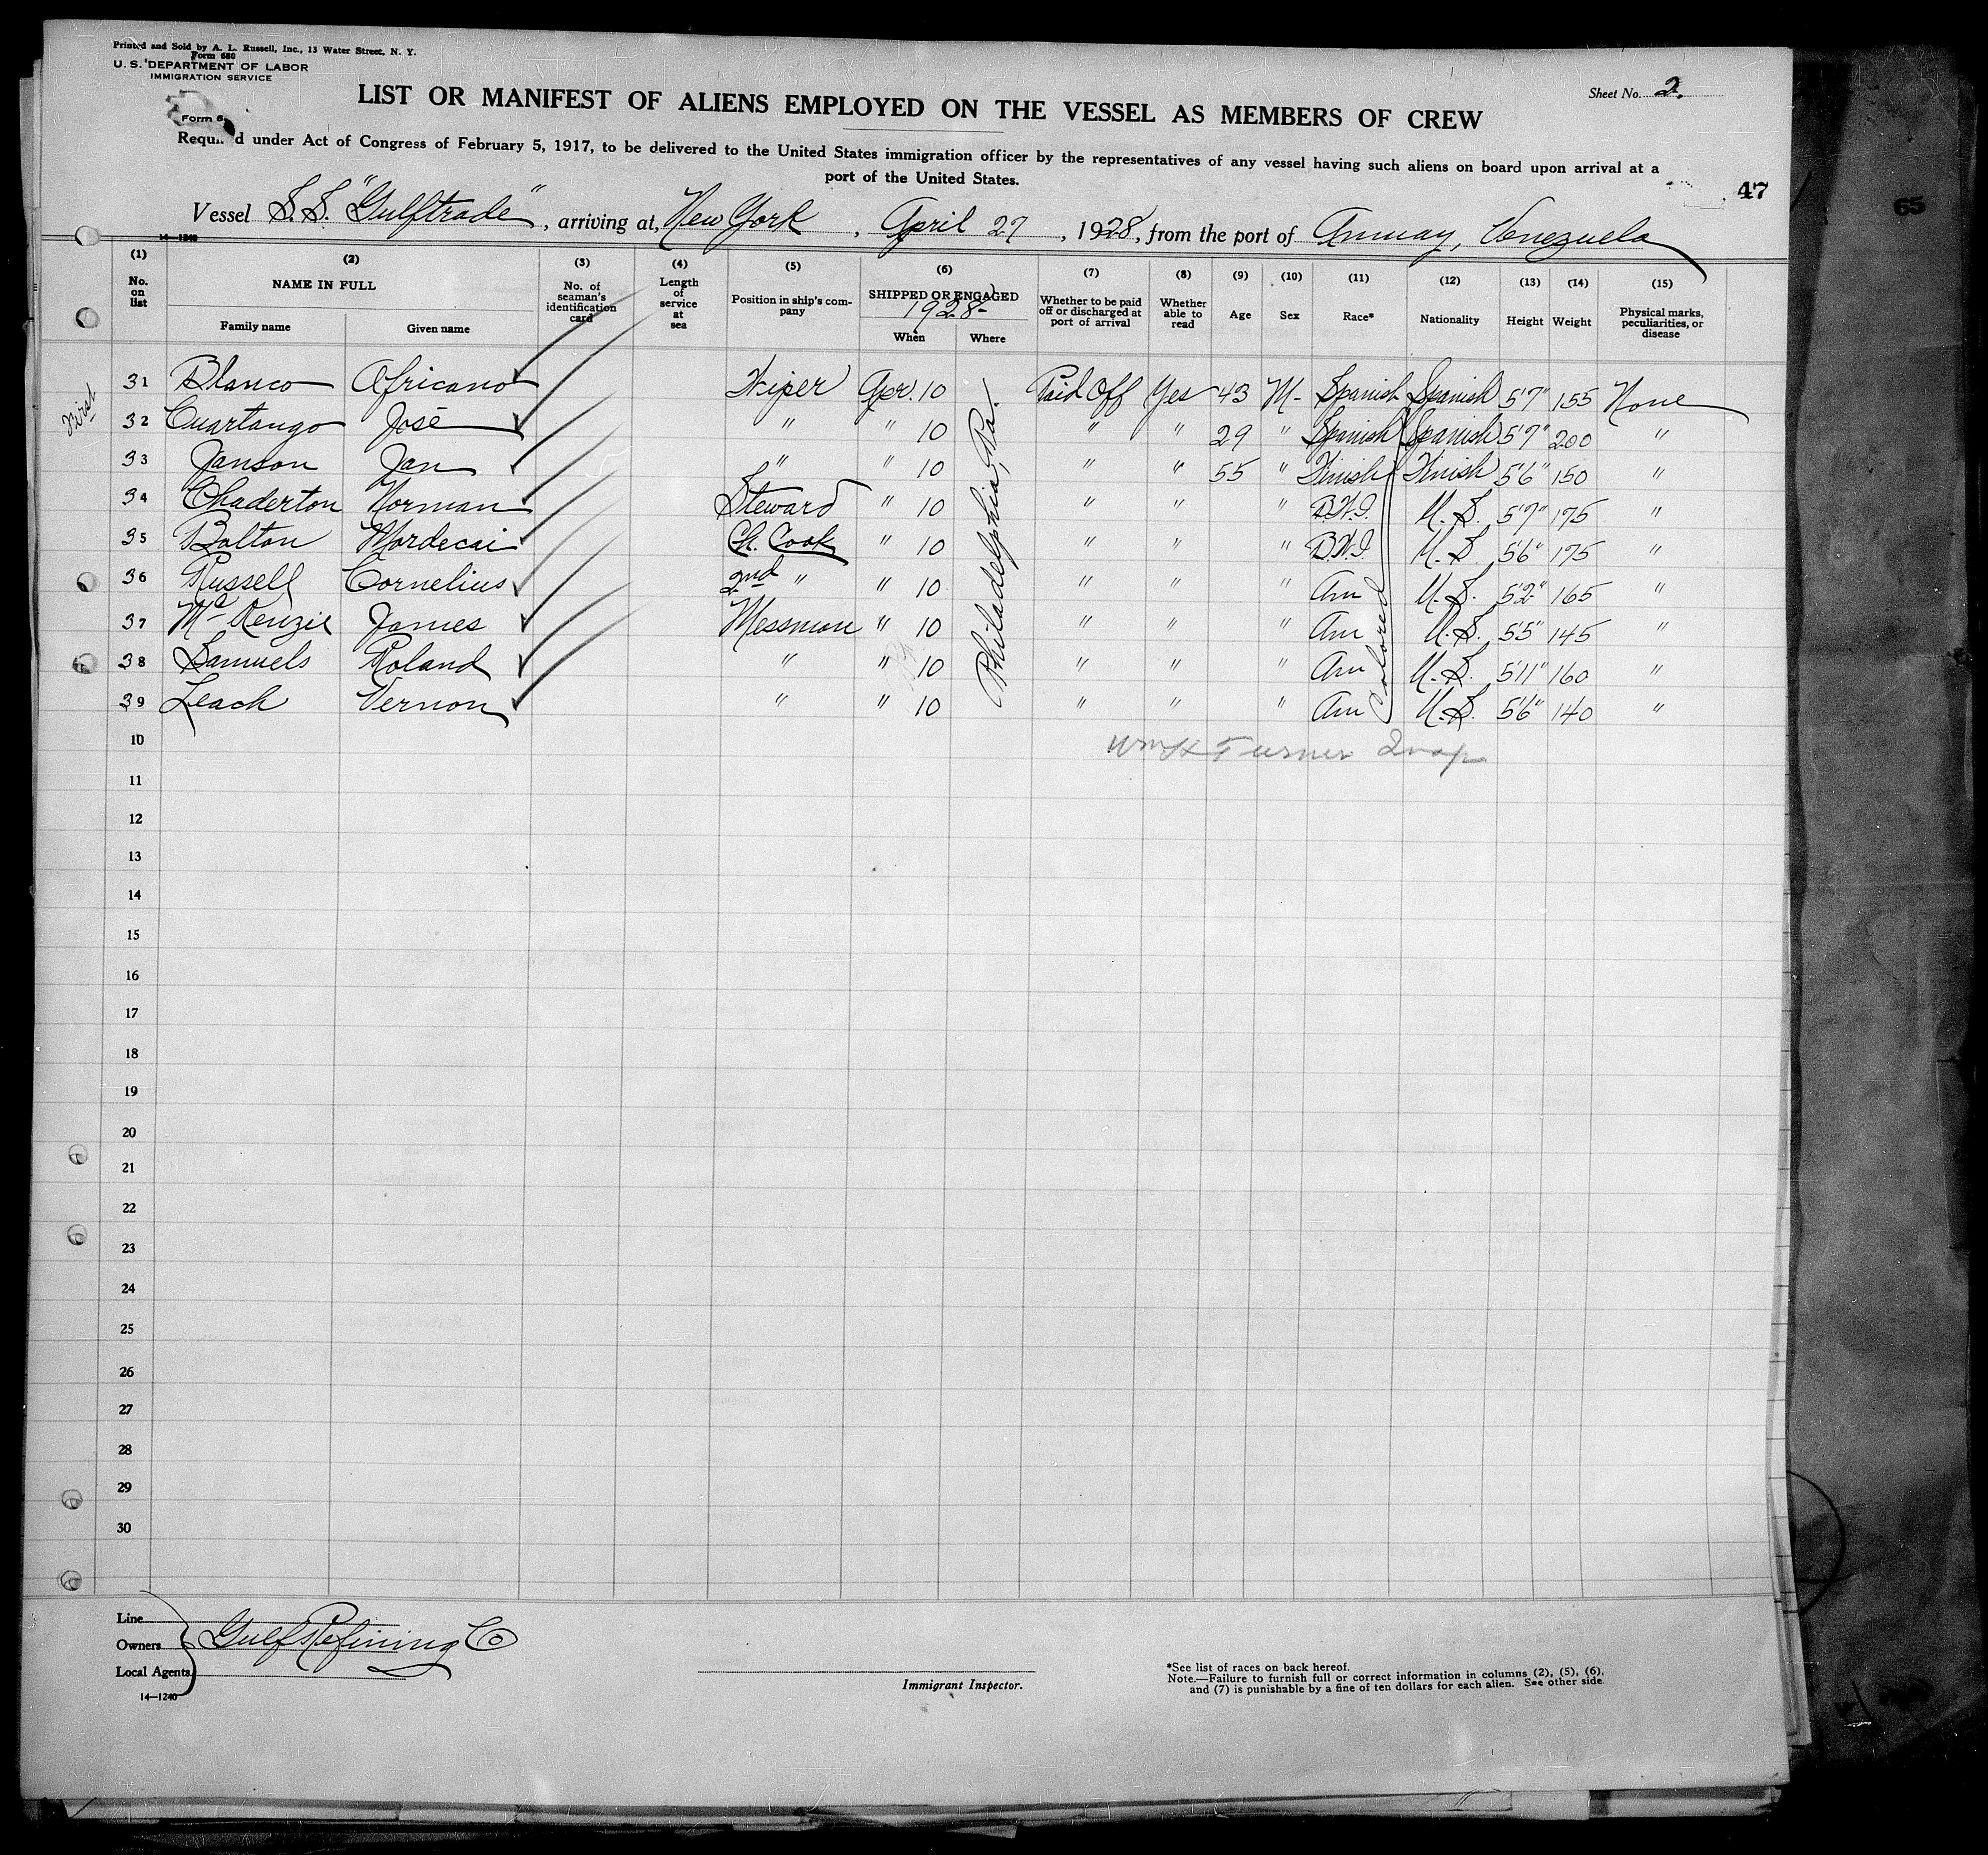 Printed and Sold by A. L. Russell, Inc., 13 Water Street, N. Y.
Form 680
U. S. DEPARTMENT OF LABOR
IMMIGRATION SERVICE
Form 6
Sheet No. 2.
LIST OR MANIFEST OF ALIENS EMPLOYED ON THE VESSEL AS MEMBERS OF CREW
Required under Act of Congress of February 5, 1917, to be delivered to the United States immigration officer by the representatives of any vessel having such aliens on board upon arrival at a
port of the United States.
47
65
Vessel S.S. "Gulftrade", arriving at, New York, April 27, 1928, from the port of Amuay, Venezuela
14—1240
(1) (2) (3) (4) (5) (6) (7) (8) (9) (10) (11) (12) (13) (14) (15)
No. on list
NAME IN FULL
Family name Given name
No. of seaman's identification card
Length of service at sea
Position in ship's company
SHIPPED OR ENGAGED
1928-
When Where
Whether to be paid off or discharged at port of arrival
Whether able to read
Age
Sex
Race*
Nationality
Height
Weight
Physical marks, peculiarities, or disease
31 Blanco Africano Wiper Apr. 10 Paid Off Yes 43 M- Spanish Spanish 5'7" 155 None
32 Cuartango José " " 10 " " 29 " Spanish Spanish 5'7" 200 "
33 Janson Jan " " 10 " " 55 " Finish Finish 5'6" 150 "
34 Chaderton Norman Steward " 10 " " " B.W.I. U.S. 5'7" 175 "
35 Bolton Mordecai Ch. Cook " 10 " " " B.W.I. U.S. 5'6" 175 "
36 Russell Cornelius 2nd " " 10 " " " Am U.S. 5'2" 165 "
37 McKenzie James Messman " 10 " " " Am U.S. 5'5" 145 "
38 Samuels Roland " " 10 " " " Am U.S. 5'11" 160 "
39 Leach Vernon " " 10 " " " Am U.S. 5'6" 140 "
Philadelphia, Pa.
Colored
First
Turner Insp
10
11
12
13
14
15
16
17
18
19
20
21
22
23
24
25
26
27
28
29
30
Line
Owners Gulf Refining Co
Local Agents
14—1240
Immigrant Inspector.
*See list of races on back hereof.
Note.—Failure to furnish full or correct information in columns (2), (5), (6),
and (7) is punishable by a fine of ten dollars for each alien. See other side